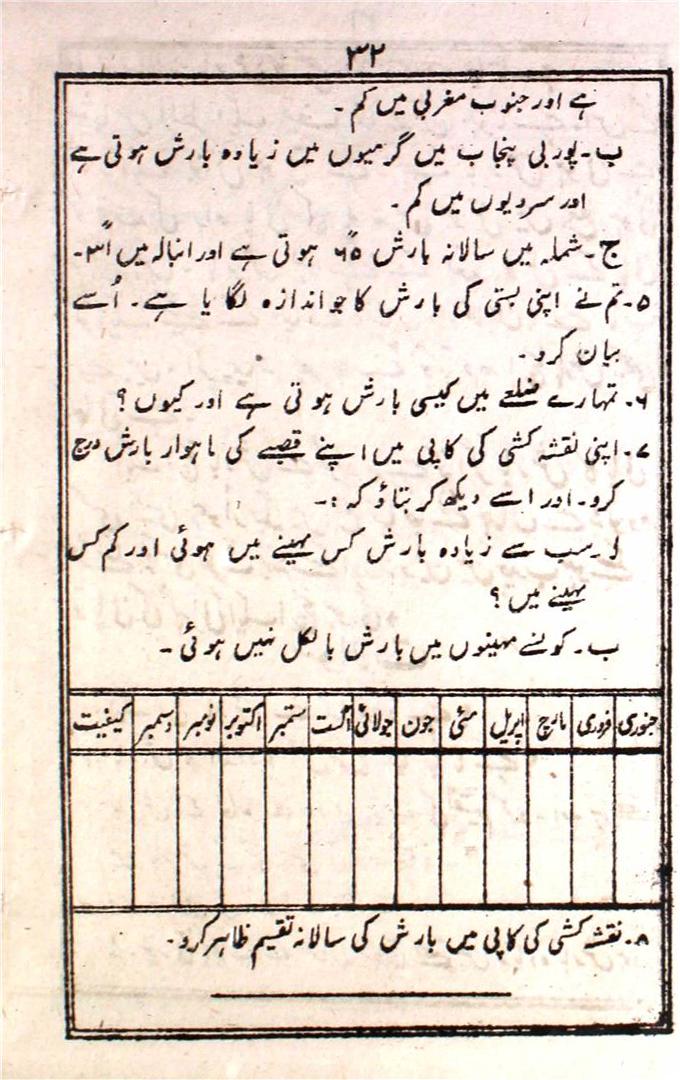 ۳۲
ہے اور جنوب مغربی میں کم۔
ب۔ پوربی پنجاب میں گرمیوں میں زیادہ بارش ہوتی ہے
اور سردیوں میں کم۔
ج۔ شملہ میں سالانہ بارش ۶۵ً ہوتی ہے اور انبالہ میں ۳۱ً۔
۵۔ تم نے اپنی بستی کی بارش کا جو اندازہ لگایا ہے۔ اُسے
بیان کرو۔
۶۔ تمہارے ضلعے میں کیسی بارش ہوتی ہے اور کیوں؟
۷۔ اپنی نقشہ کشی کی کاپی میں اپنے قصبے کی ماہوار بارش درج
کرو۔ اور اسے دیکھ کر بتاؤ کہ :۔
ا۔ سب سے زیادہ بارش کس مہینے میں ہوئی اور کم کس
مہینے میں؟
ب۔ کونسے مہینوں میں بارش بالکل نہیں ہوئی۔
جنوری فروری مارچ اپریل مئی جون جولائی اگست ستمبر اکتوبر نومبر دسمبر کیفیت
۸۔ نقشہ کشی کی کاپی میں بارش کی سالانہ تقسیم ظاہر کرو۔